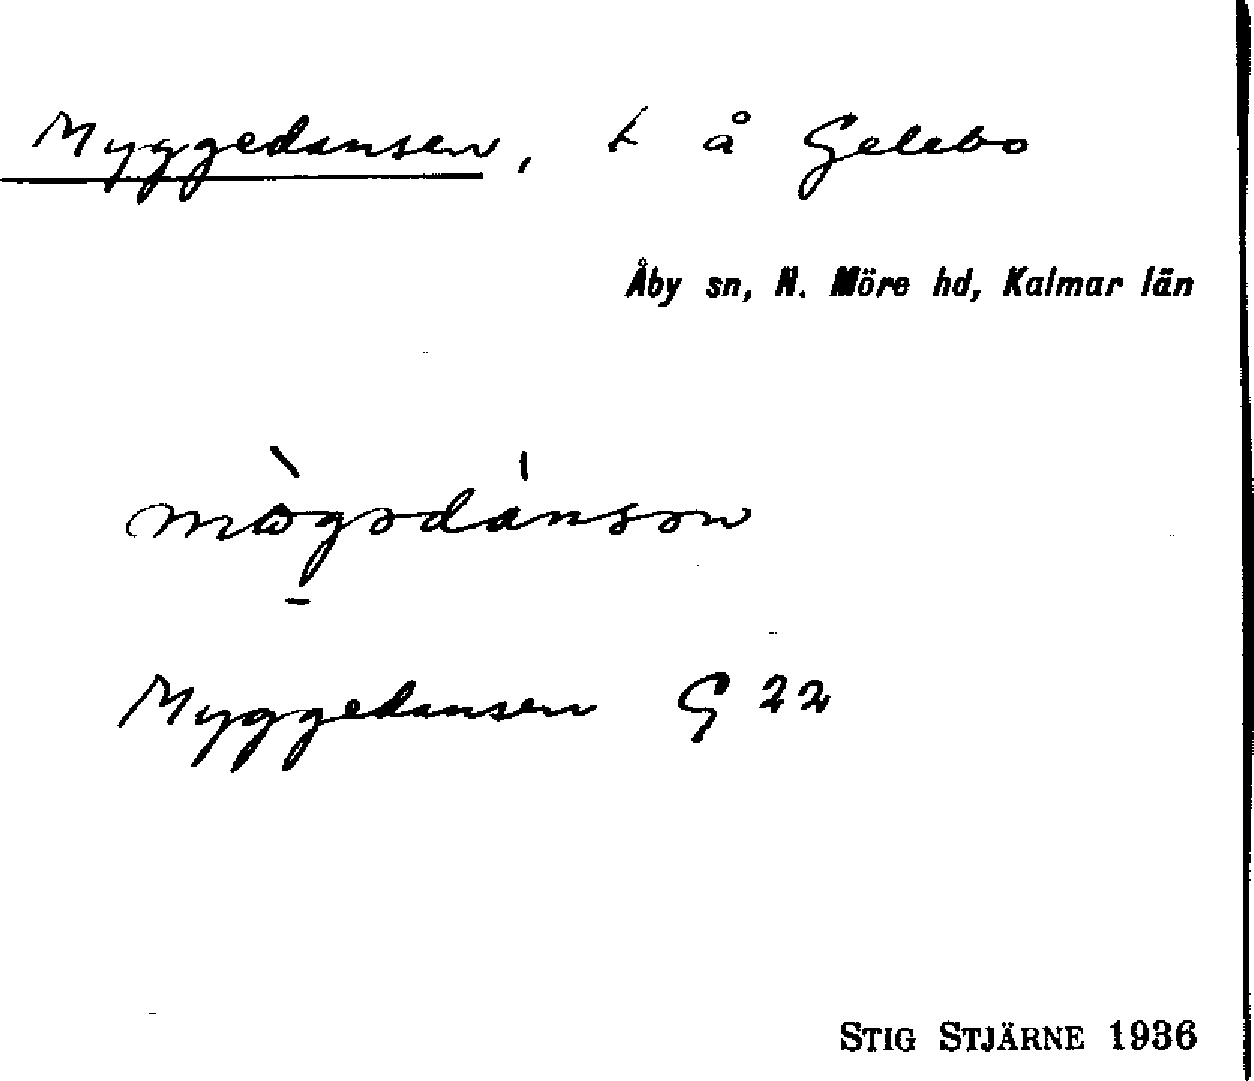 Myggedansen, t å Gelebo
Åby sn, N. Möre hd, Kalmar län
Myggedansen G 22
STIG STJÄRNE 1936